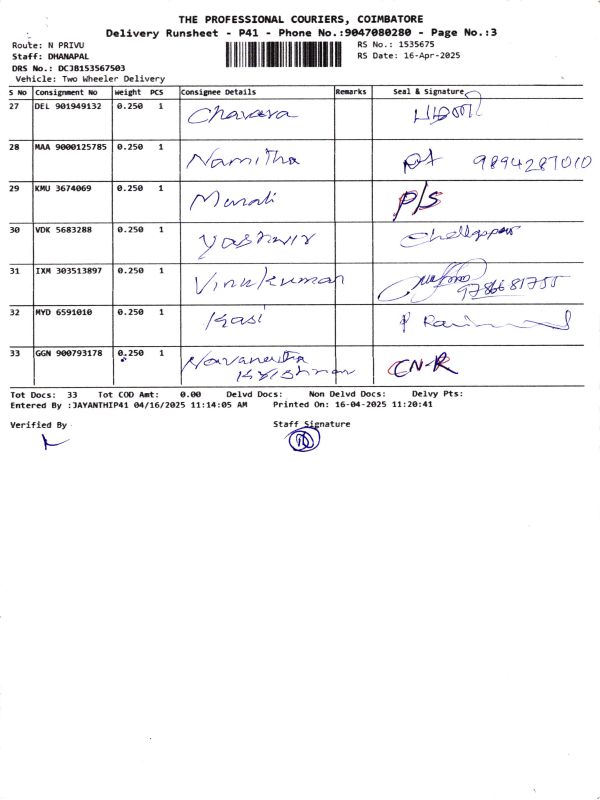 THE PROFESSIONAL COURIERS, COIMBATORE
Delivery Runsheet - P41 - Phone No.:9047080280 - Page No.:3
Route: N PRIVU RS No.: 1535675
Staff: DHANAPAL RS Date: 16-Apr-2025
DRS No.: DCJB153567503
Vehicle: Two Wheeler Delivery
S No Consignment No Weight PCS Consignee Details Remarks Seal & Signature
27 DEL 901949132 0.250 1 Chavara
28 MAA 9000125785 0.250 1 Namitha 9894287010
29 KMU 3674069 0.250 1 Murali P/S
30 VDK 5683288 0.250 1 Yashavir Chellappan
31 IXM 303513897 0.250 1 Vinukumar 9786681755
32 MYD 6591010 0.250 1 Kasi
33 GGN 900793178 0.250 1 Navaneetha CN-R
Krishnan
Tot Docs: 33 Tot COD Amt: 0.00 Delvd Docs: Non Delvd Docs: Delvy Pts:
Entered By :JAYANTHIP41 04/16/2025 11:14:05 AM Printed On: 16-04-2025 11:20:41
Verified By Staff Signature